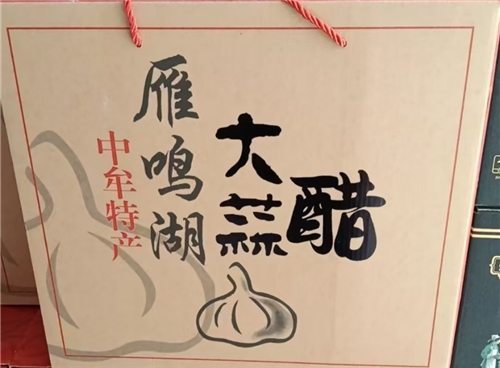 中牟特产
雁鸣湖
大蒜
醋